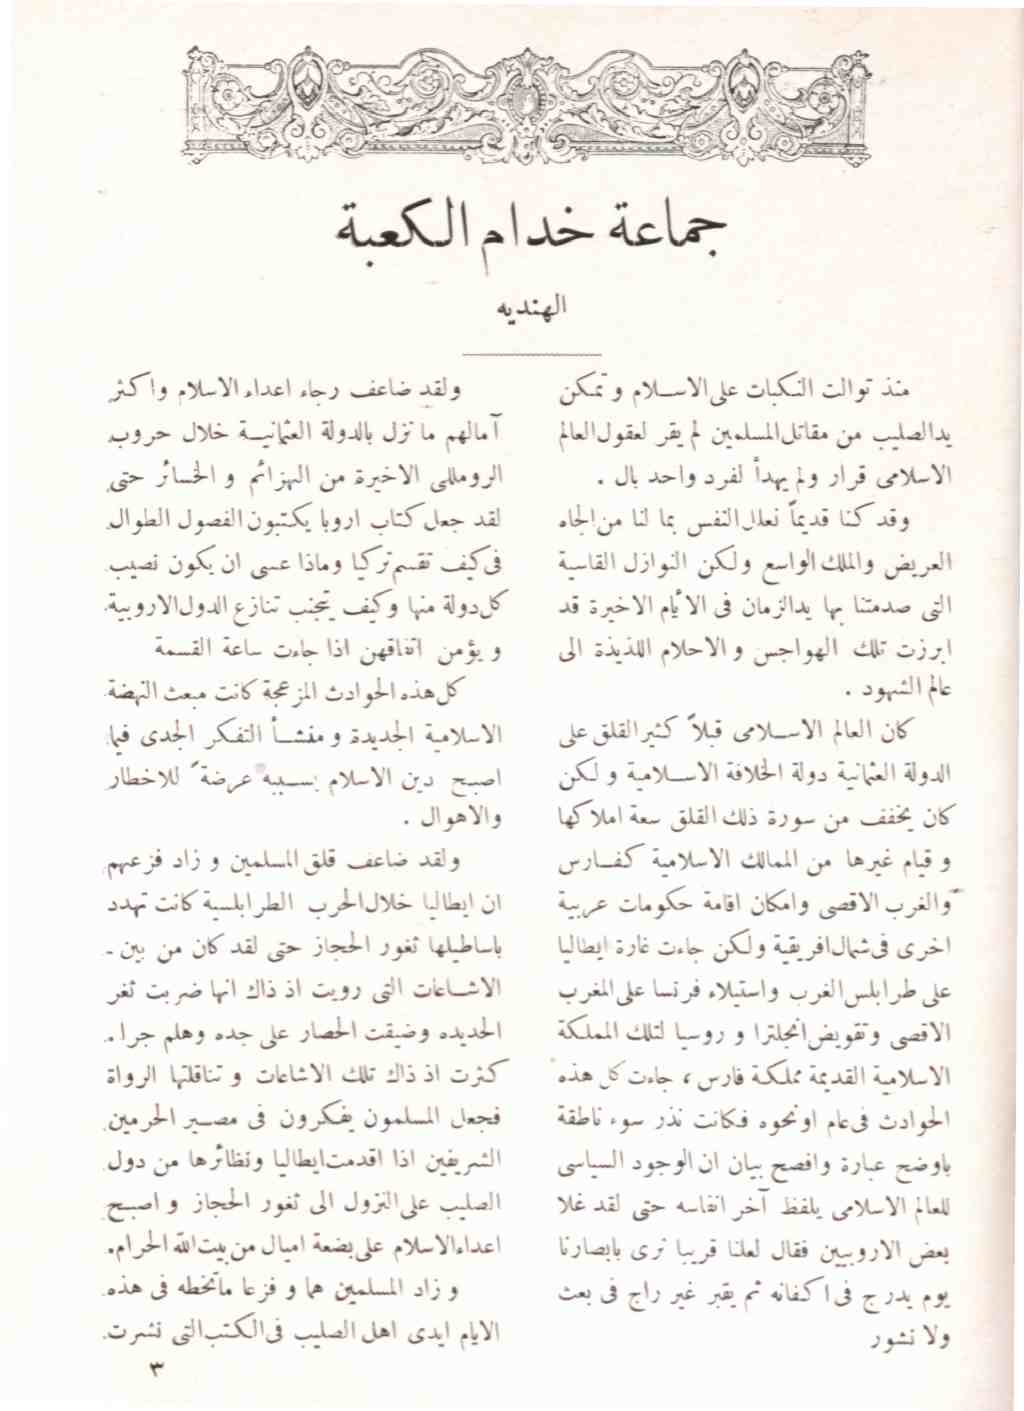 جماعة خدام الكعبة
الهنديه
منذ توالت النكبات على الاسلام و تمكن
يد الصليب من مقاتل المسلمين لم يقر لعقول العالم
الاسلامى قرار ولم يهدأ لفرد واحد بال .
وقد كنا قديماً نعلل النفس بما لنا من الجاه
العريض والملك الواسع ولكن النوازل القاسية
التى صدمتنا بها يد الزمان فى الأيام الاخيرة قد
ابرزت تلك الهواجس و الاحلام اللذيذة الى
عالم الشهود .
كان العالم الاسلامى قبلاً كثير القلق على
الدولة العثمانية دولة الخلافة الاسلامية و لكن
كان يخفف من سورة ذلك القلق سعة املاكها
و قيام غيرها من الممالك الاسلامية كفارس
والغرب الاقصى وامكان اقامة حكومات عربية
اخرى فى شمال افريقية ولكن جاءت غارة ايطاليا
على طرابلس الغرب واستيلاء فرنسا على المغرب
الاقصى وتقويض انجلترا و روسيا لتلك المملكة
الاسلامية القديمة مملكة فارس ، جاءت كل هذه
الحوادث فى عام اونحوه فكانت نذر سوء ناطقة
باوضح عبارة وافصح بيان ان الوجود السياسى
للعالم الاسلامى يلفظ آخر انفاسه حتى لقد غلا
بعض الاروبيين فقال لعلنا قريبا نرى بابصارنا
يوم يدرج فى اكفانه ثم يقبر غير راج فى بعث
ولا نشور
ولقد ضاعف رجاء اعداء الاسلام واكثر
آمالهم ما نزل بالدولة العثمانية خلال حروب
الروملى الاخيرة من الهزائم و الخسائر حتى
لقد جعل كتاب اروبا يكتبون الفصول الطوال
فى كيف تقسم تركيا وماذا عسى ان يكون نصيب
كل دولة منها وكيف يتجنب تنازع الدول الاروبية
و يؤمن اتفاقهن اذا جاءت ساعة القسمة
كل هذه الحوادث المزعجة كانت مبعث النهضة
الاسلامية الجديدة و منشأ التفكر الجدى فيما
اصبح دين الاسلام بسببه عرضة للاخطار
والاهوال .
ولقد ضاعف قلق المسلمين و زاد فزعهم
ان ايطاليا خلال الحرب الطرابلسية كانت تهدد
باساطيلها ثغور الحجاز حتى لقد كان من بين -
الاشاعات التى رويت اذ ذاك انها ضربت ثغر
الحديده وضيقت الحصار على جده وهلم جرا .
كثرت اذ ذاك تلك الاشاعات و تناقلتها الرواة
فجعل المسلمون يفكرون فى مصير الحرمين
الشريفين اذا اقدمت ايطاليا ونظائرها من دول
الصليب على النزول الى ثغور الحجاز و اصبح
اعداء الاسلام على بضعة اميال من بيت الله الحرام .
و زاد المسلمين هما و فزعا ما تخطه فى هذه
الايام ايدى اهل الصليب فى الكتب التى نشرت
٣